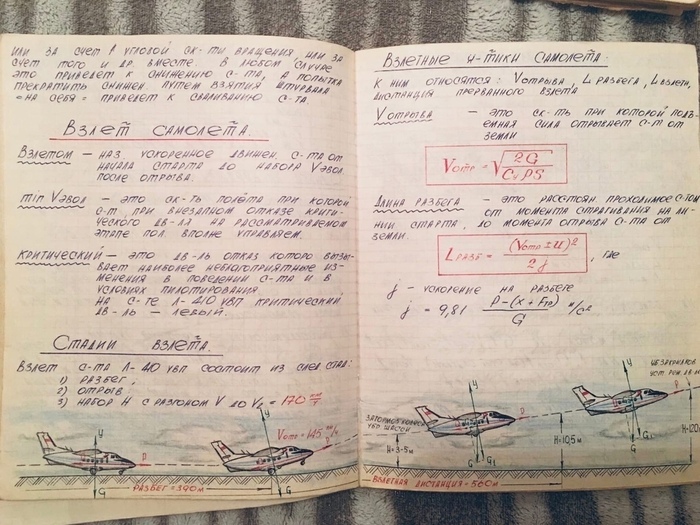 ИЛИ ЗА СЧЕТ ↑ УГЛОВОЙ СК-ТИ ВРАЩЕНИЯ, ИЛИ ЗА
СЧЕТ ТОГО И ДР. ВМЕСТЕ. В ЛЮБОМ СЛУЧАЕ
ЭТО ПРИВЕДЕТ К СНИЖЕНИЮ С-ТА, А ПОПЫТКА
ПРЕКРАТИТЬ СНИЖЕН. ПУТЕМ ВЗЯТИЯ ШТУРВАЛА
"НА СЕБЯ" ПРИВЕДЕТ К СВАЛИВАНИЮ С-ТА.
ВЗЛЕТ САМОЛЕТА.
ВЗЛЕТОМ – НАЗ. УСКОРЕННОЕ ДВИЖЕН. С-ТА ОТ
НАЧАЛА СТАРТА ДО НАБОРА VЭВОЛ.
ПОСЛЕ ОТРЫВА.
min VЭВОЛ – ЭТО СК-ТЬ ПОЛЕТА ПРИ КОТОРОЙ
С-Т, ПРИ ВНЕЗАПНОМ ОТКАЗЕ КРИТИ-
ЧЕСКОГО ДВ-ЛА НА РАССМАТРИВАЕМОМ
ЭТАПЕ ПОЛ. ВПОЛНЕ УПРАВЛЯЕМ.
КРИТИЧЕСКИЙ – ЭТО ДВ-ЛЬ ОТКАЗ КОТОРО ВЫЗЫ-
ВАЕТ НАИБОЛЕЕ НЕБЛАГОПРИЯТНЫЕ ИЗ-
МЕНЕНИЯ В ПОВЕДЕНИИ С-ТА И В
УСЛОВИЯХ ПИЛОТИРОВАНИЯ
НА С-ТЕ Л-410 УВП КРИТИЧЕСКИЙ
ДВ-ЛЬ – ЛЕВЫЙ.
СТАДИИ ВЗЛЕТА.
ВЗЛЕТ С-ТА Л-410 УВП СОСТОИТ ИЗ СЛЕД. СТАД:
1) РАЗБЕГ,
2) ОТРЫВ
3) НАБОР H С РАЗГОНОМ V ДО = 170 КМ/Ч
Y
P
G
РАЗБЕГ = 390 М
Vотр = 145 КМ/Ч
Y
G
ВЗЛЕТНЫЕ Х-ТИКИ САМОЛЕТА
К НИМ ОТНОСЯТСЯ: VОТРЫВА, L РАЗБЕГА, L ВЗЛЕТН,
ДИСТАНЦИЯ ПРЕРВАННОГО ВЗЛЕТА
VОТРЫВА – ЭТО СК-ТЬ ПРИ КОТОРОЙ ПОДЪ-
ЕМНАЯ СИЛА ОТРЫВАЕТ С-Т ОТ
ЗЕМЛИ
Vотр = √(2G / CyρS)
ДЛИНА РАЗБЕГА – ЭТО РАССТОЯН. ПРОХОДИМОЕ С-ТОМ
ОТ МОМЕНТА СТРАГИВАНИЯ НА ЛИ-
НИИ СТАРТА, ДО МОМЕНТА ОТРЫВА С-ТА ОТ
ЗЕМЛИ.
L РАЗБ = (Vотр ± U)² / 2j, ГДЕ
j – УСКОРЕНИЕ НА РАЗБЕГЕ
j = 9,81 P – (X + Fтр) / G М/С²
ЗАТОРМОЗ. КОЛЕСА
УБР. ШАССИ
H = 3-5М
Y
P
G
G1
H = 10,5М
УБ. ЗАКРЫЛКОВ
Y
P
G
G1
ВЗЛЕТНАЯ ДИСТАНЦИЯ = 560 М